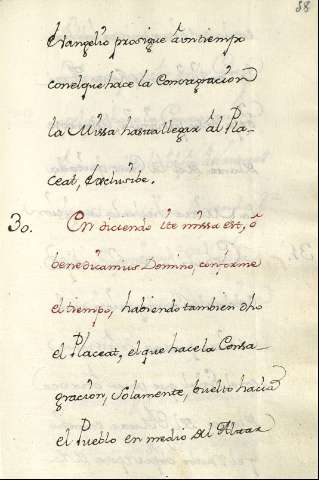 88
Evangelio prosigue à un tiempo
con el que hace la Consagracion
la Missa hasta llegar àl Pla-
ceat, exclusibe.
30. En diciendo ite missa est, ò
benedicamus Domino, conforme
el tiempo, habiendo tambien dho
el Placeat, el que hace la Consa-
gracion, solamente, buelto hacia
el Pueblo en medio del Altar